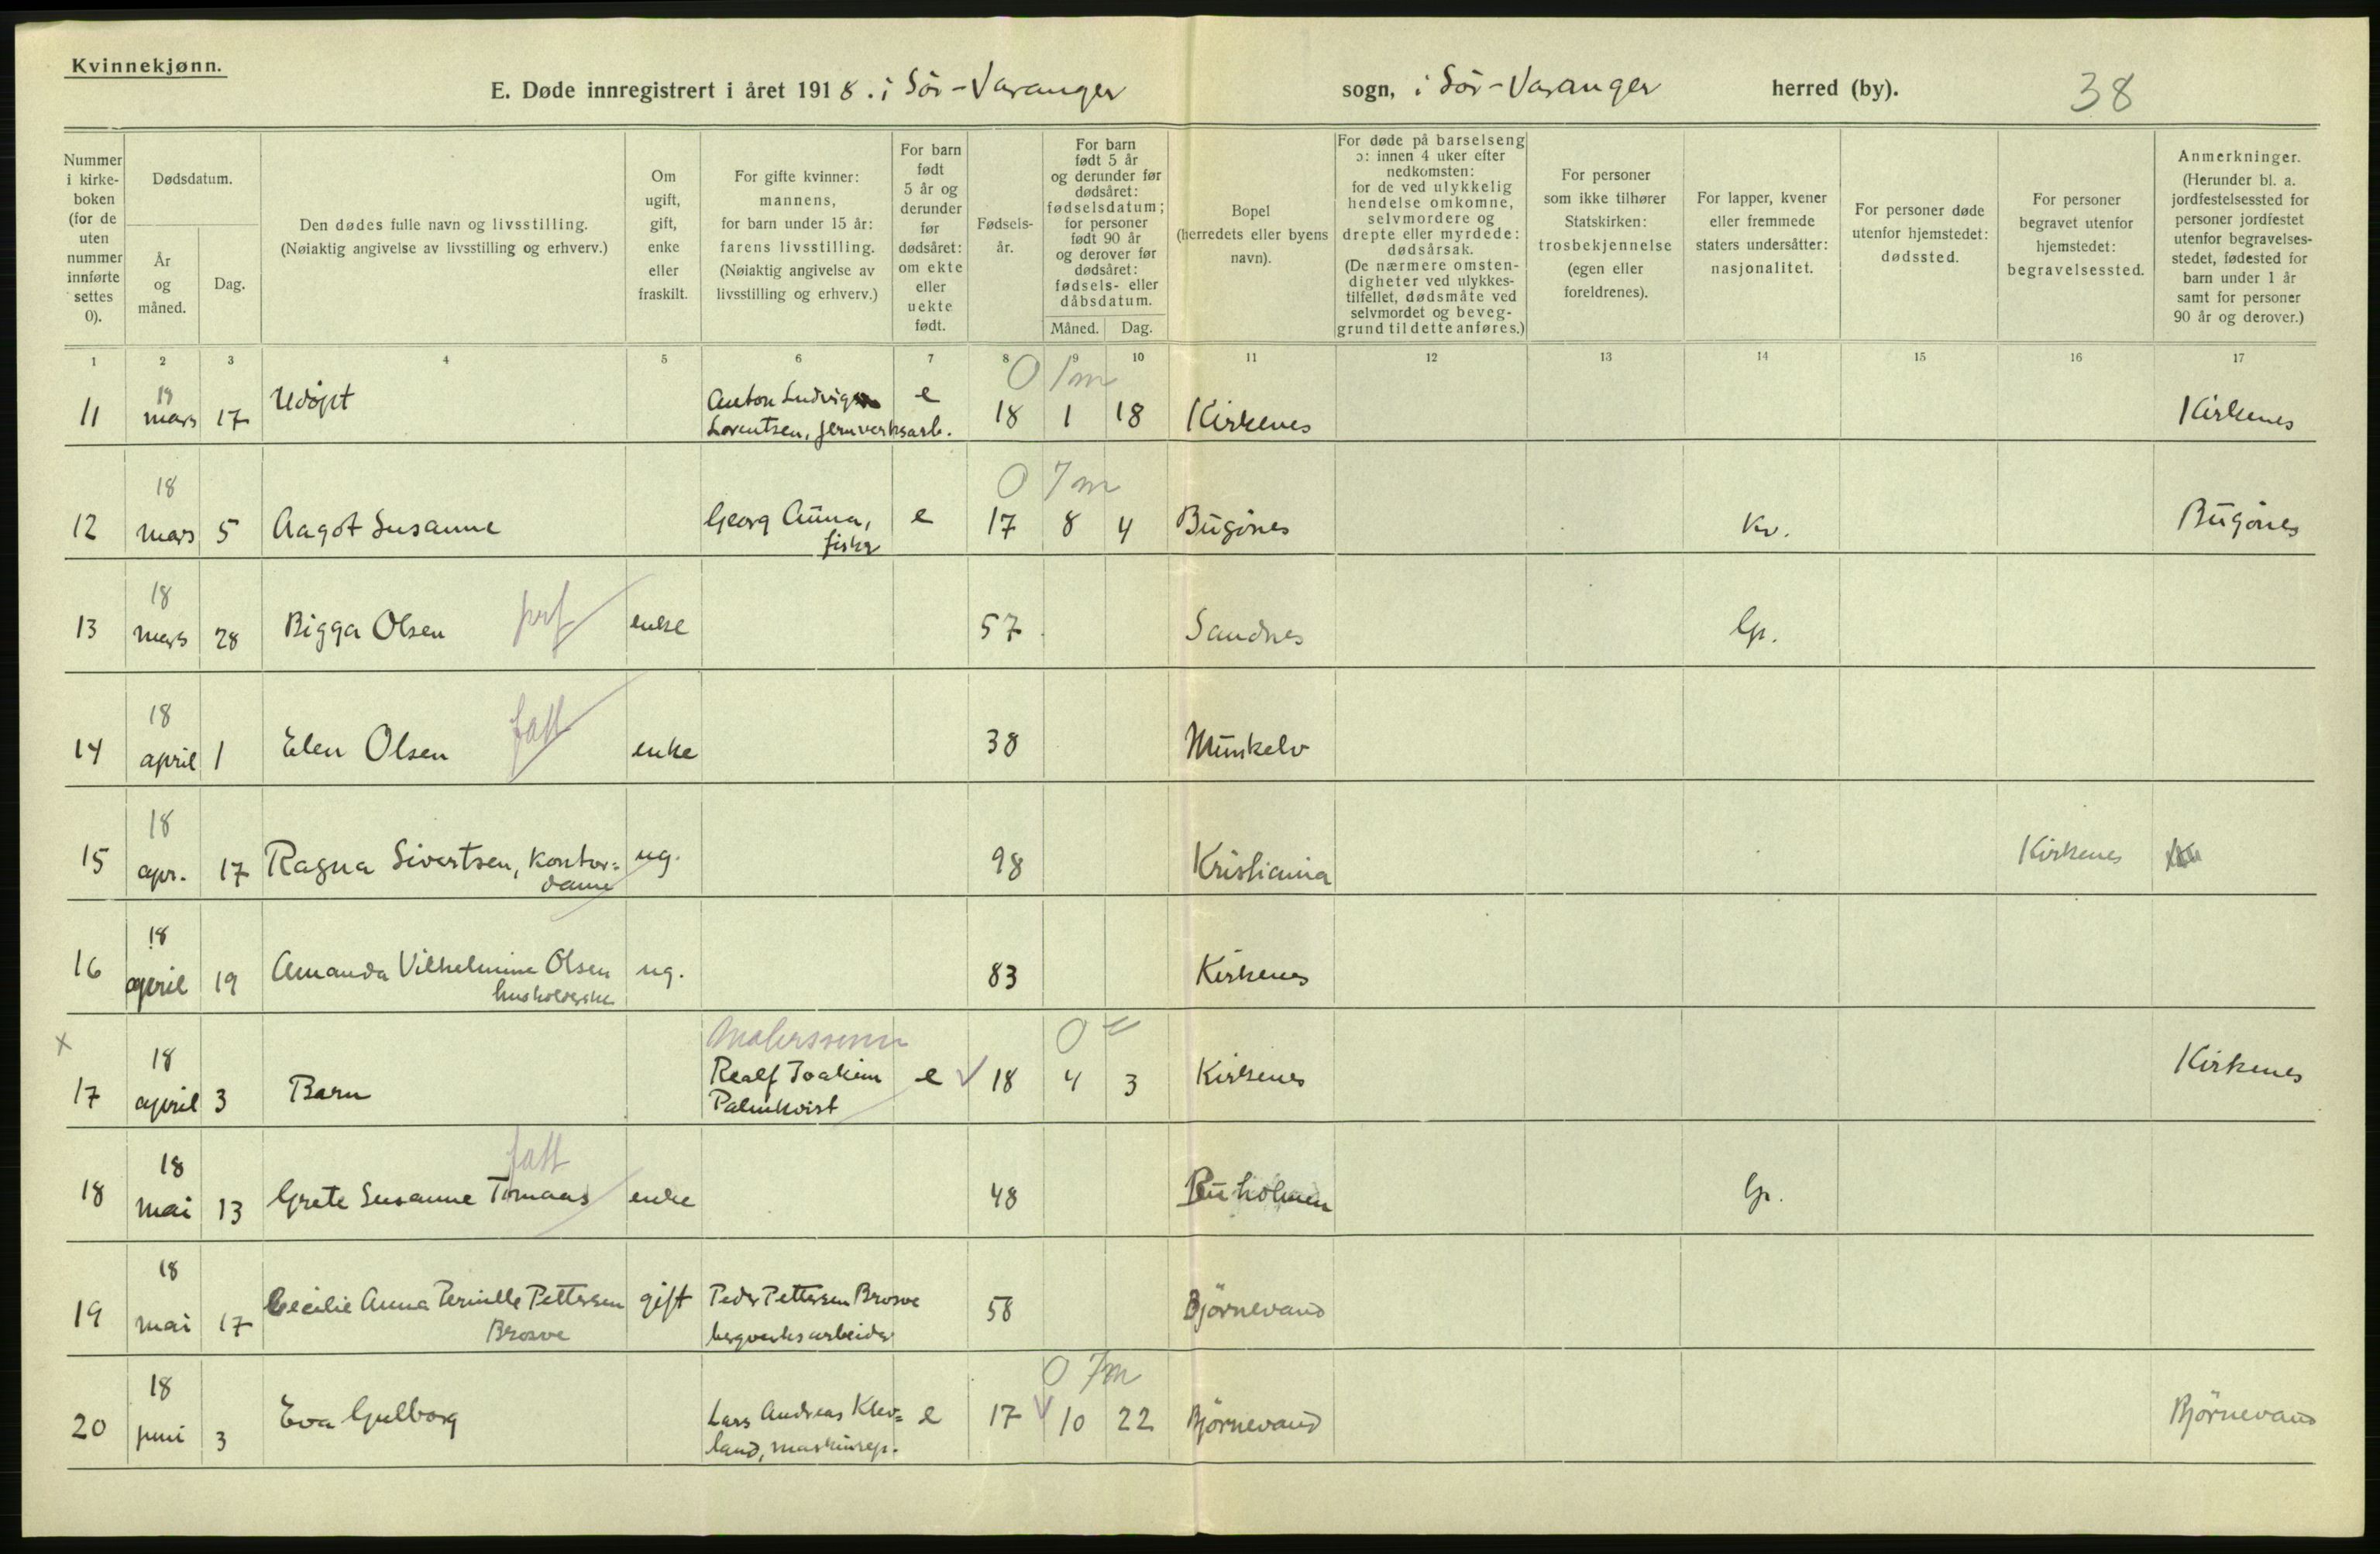 Kvinnekjønn.
E. Døde innregistrert i året 1918. i Sör-Varanger sogn, i Sör-Varanger herred (by). 38
Nummer i kirke- boken (for de uten nummer innførte settes 0).
Dødsdatum.
År og måned.
Dag.
Den dødes fulle navn og livsstilling.
(Nøiaktig angivelse av livsstilling og erhverv.)
Om ugift, gift, enke eller fraskilt.
For gifte kvinner: mannens, for barn under 15 år: farens livsstilling. (Nøiaktig angivelse av livsstilling og erhverv.)
For barn født 5 år og derunder før dødsåret: om ekte eller uekte født.
Fødsels- år.
For barn født 5 år og derunder før dødsåret: fødselsdatum; for personer født 90 år og derover før dødsåret: fødsels- eller dåbsdatum.
Måned. Dag.
Bopel (herredets eller byens navn).
For døde på barselseng ɔ: innen 4 uker efter nedkomsten: for de ved ulykkelig hendelse omkomne, selvmordere og drepte eller myrdede: dødsårsak. (De nærmere omsten- digheter ved ulykkes- tilfellet, dødsmåte ved selvmordet og beveg- grund til dette anføres.)
For personer som ikke tilhører Statskirken: trosbekjennelse (egen eller foreldrenes).
For lapper, kvener eller fremmede staters undersåtter: nasjonalitet.
For personer døde utenfor hjemstedet: dødssted.
For personer begravet utenfor hjemstedet: begravelsessted.
Anmerkninger. (Herunder bl. a. jordfestelsessted for personer jordfestet utenfor begravelses- stedet, fødested for barn under 1 år samt for personer 90 år og derover.)
1 2 3 4 5 6 7 8 9 10 11 12 13 14 15 16 17
0 1m
11 18 mars 17 Udöpt Anton Ludvigsen e 18 1 18 Kirkenes Kirkenes
Lorentsen, jernverksarb.
0 7m
12 18 mars 5 Aagot Susanne Georg Aüna, e 17 8 4 Bügönes Kv. Bügönes
fisker
13 18 mars 28 Bigga Olsen enke 57 Sandnes lp.
14 18 april 1 Elen Olsen fatt enke 38 Münkelv
15 18 apr. 17 Ragna Sivertsen, kontor= ug. 98 Kristiania Kirkenes
dame
16 18 april 19 Amanda Vilhelmine Olsen ug. 83 Kirkenes
husholderske
0
17 18 april 3 Barn Realf Joakim e 18 4 3 Kirkenes Kirkenes
x Palmkvist
fatt
18 18 mai 13 Grete Susanne Tomaas enke 48 Büholmen lp.
19 18 mai 17 Cecilie Anna Pernille Pettersen gift Peder Pettersen Brosve 58 Björnevand
Brosve bergverksarbeider
0 7m
20 18 juni 3 Eva Gulborg Lars Andreas Klev= e 17 10 22 Björnevand Björnevand
land, maskinrep.